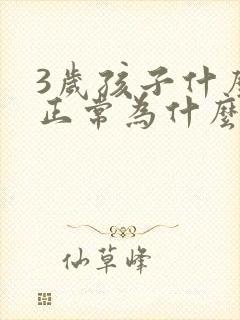 3歲孩子什麼
正常為什麼
仙草峰